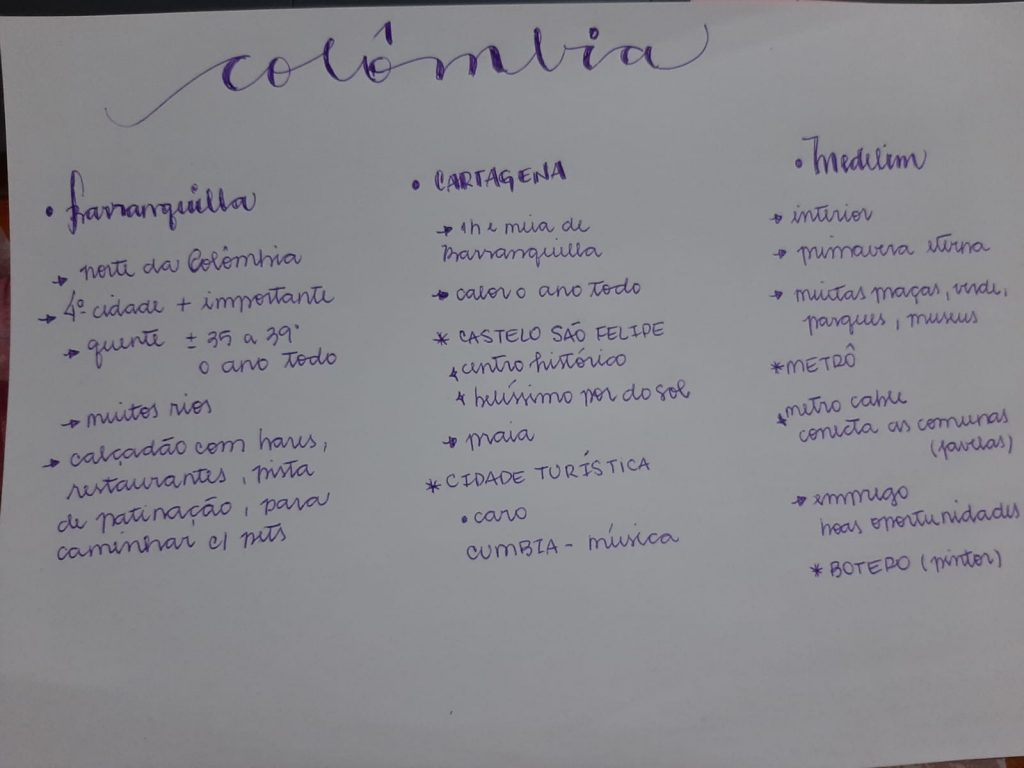 colômbia
• Barranquilla
→ norte da Colômbia
→ 4º cidade + importante
→ quente ± 35 a 39°
o ano todo
→ muitos rios
→ calçadão com bares,
restaurantes, pista
de patinação, para
caminhar c/ pets
• CARTAGENA
→ 1h e meia de
Barranquilla
→ calor o ano todo
* CASTELO SÃO FELIPE
* centro histórico
* belíssimo por do sol
→ praia
* CIDADE TURÍSTICA
• caro
CUMBIA - música
• Medelim
→ interior
→ primavera eterna
→ muitas praças, verde,
parques, museus
* METRÔ
* metro cable
conecta as comunas
(favelas)
→ emprego
boas oportunidades
* BOTERO (pintor)